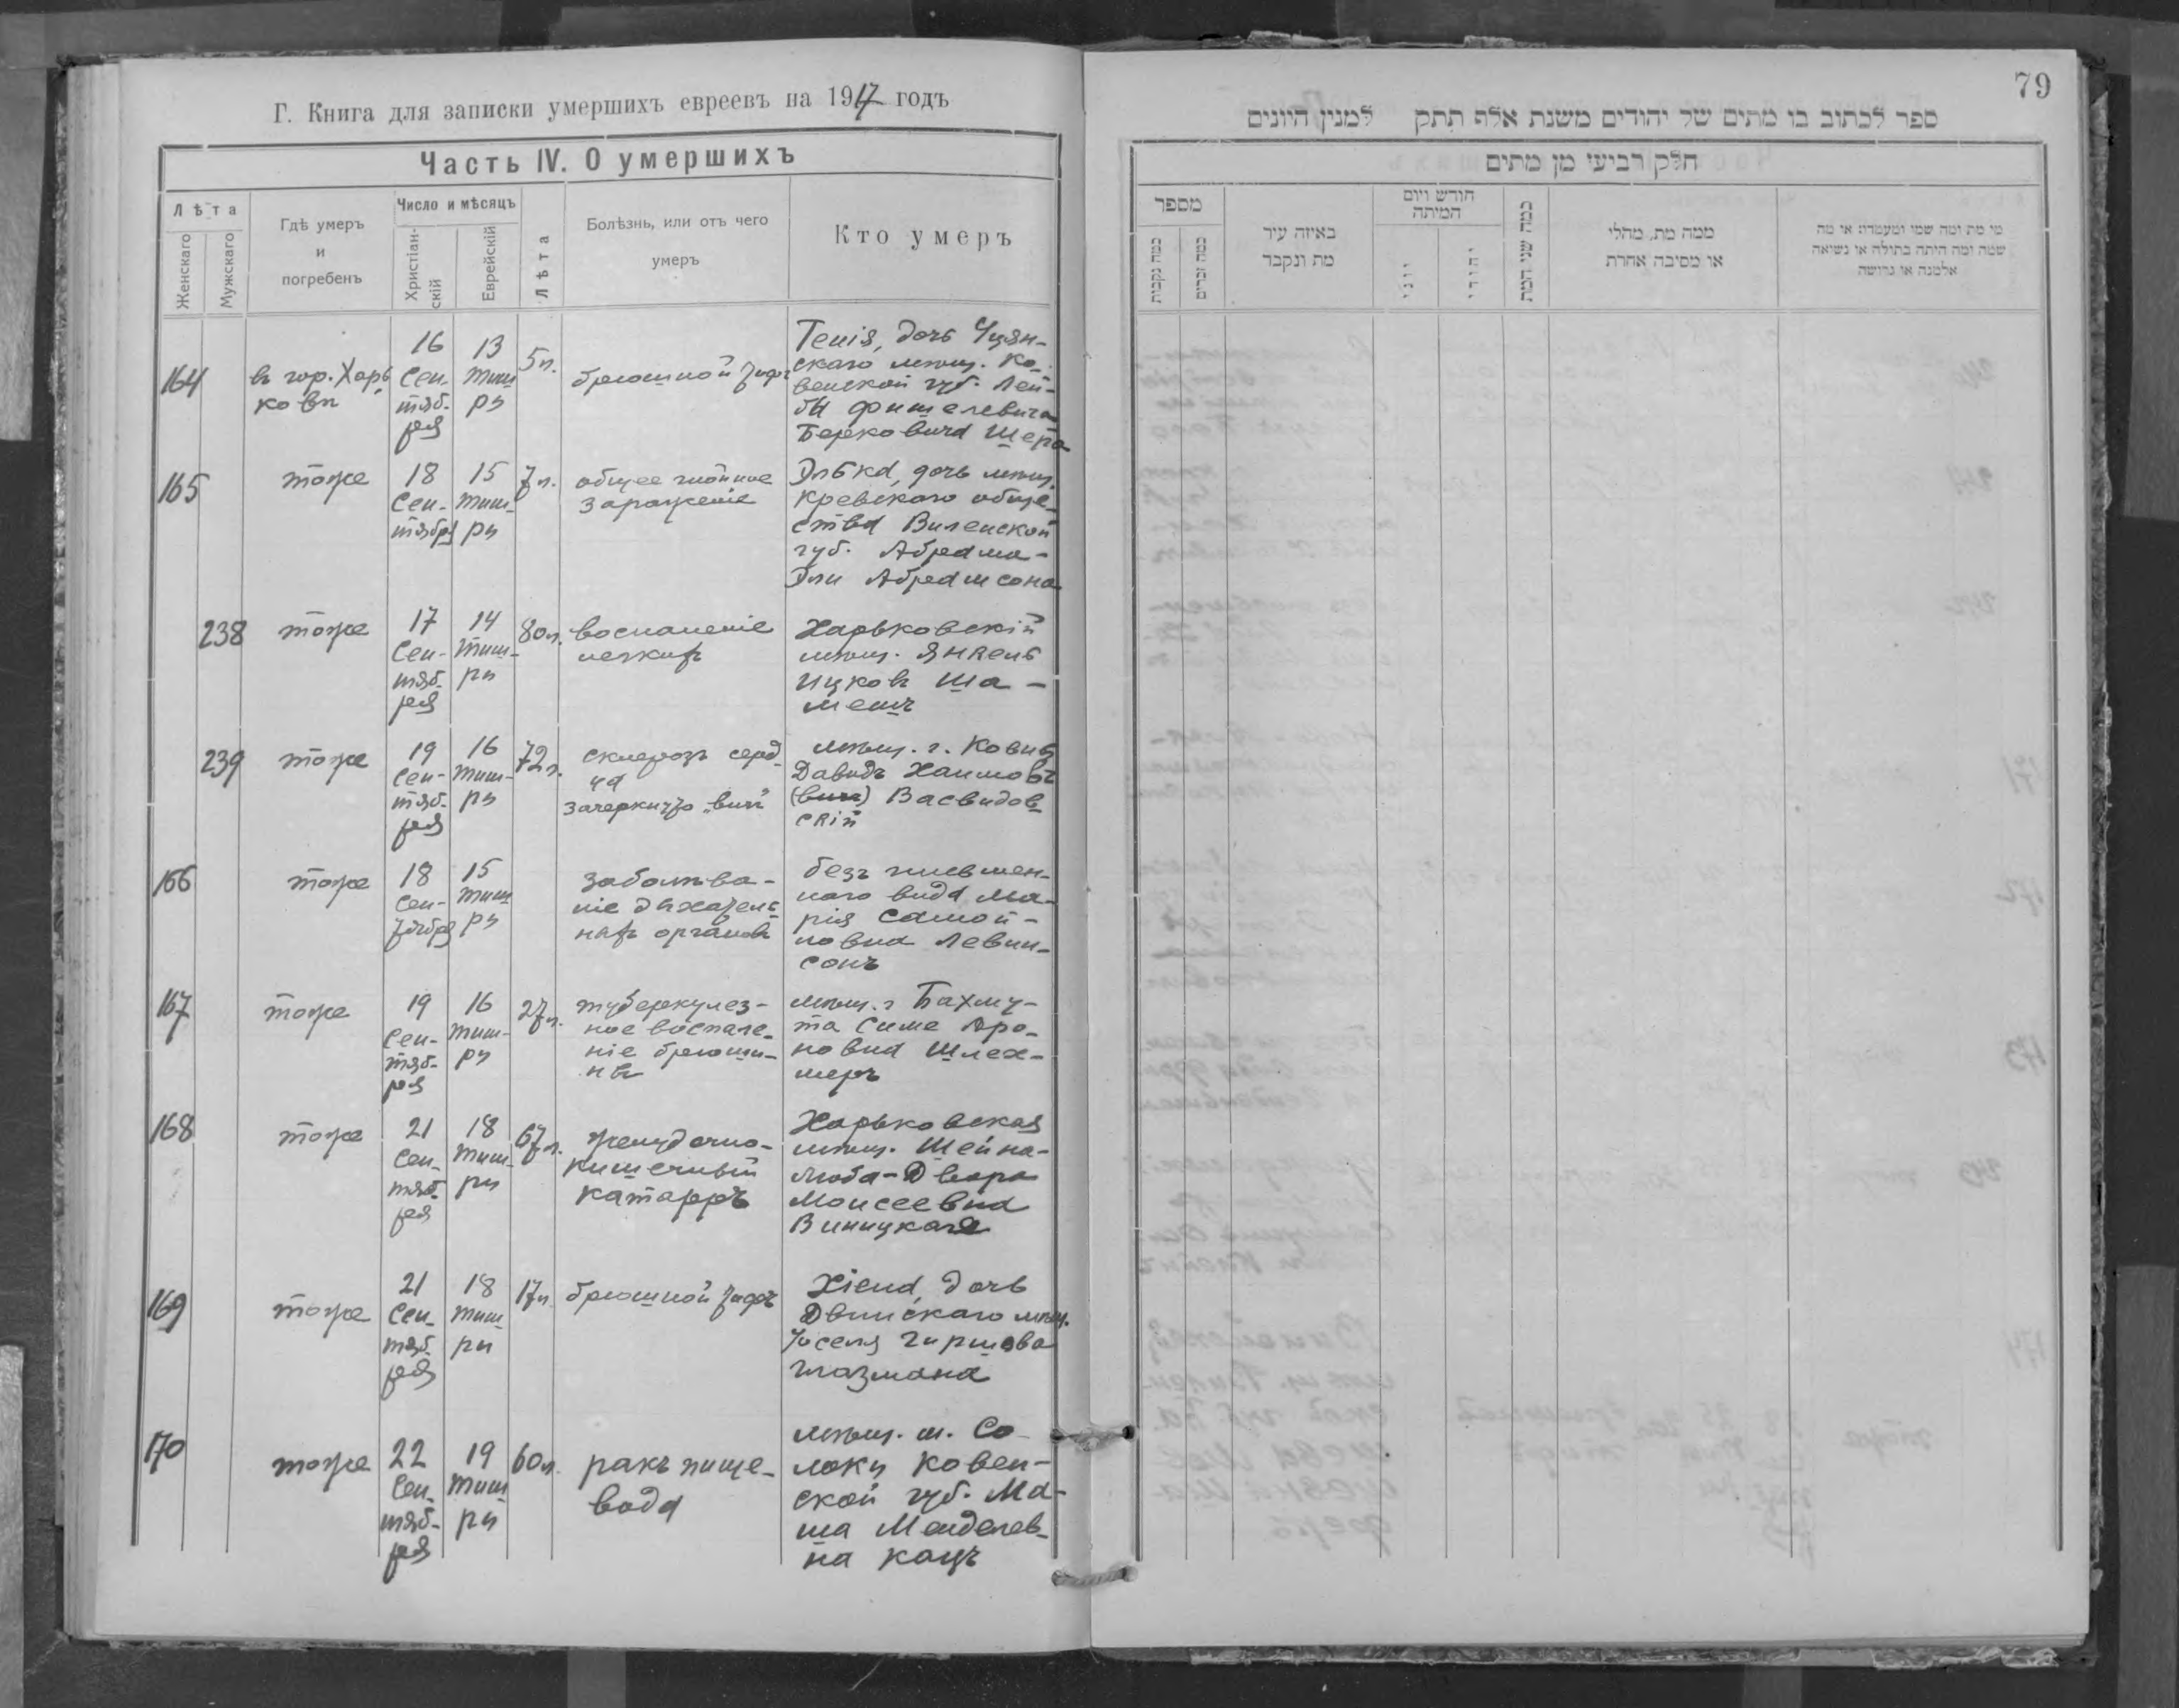 Г. Книга для записки умершихъ евреевъ на 1917 годъ
Часть IV. О умершихъ
Лѣта
Женскаго
Мужскаго
Гдѣ умеръ
и
погребенъ
Число и мѣсяцъ
Христіан-
скій
Еврейскій
Лѣта
Болѣзнь, или отъ чего
умеръ
Кто умеръ
164
въ гор. Харь
ковѣ
16
Сен-
тяб-
ря
13
Тиш
ри
5 л.
брюшной тифъ
дочь
скаго мѣщ. Ко-
венской губ. Лей-
бы Фишелевича
Берковича Шера
165
тоже
18
Сен-
тября
15
Тиш-
ри
7 л.
общее гнойное
зараженіе
Элька, дочь мѣщ.
Кревскаго обще-
ства Виленской
губ. Абрама-
Эли Абрамсона
238
тоже
17
Сен-
тяб-
ря
14
Тиш-
ри
80 л.
воспаленіе
легкихъ
Харьковскій
мѣщ. Янкель
Ицковъ Ша-
мешъ
239
тоже
19
Сен-
тяб-
ря
16
Тиш-
ри
72 л.
склерозъ серд-
ца
зачеркнуто „вич"
мѣщ. г. Ковны
Давидъ Хаимовъ
(вич) Васвидов-
скій
166
тоже
18
Сен-
тября
15
Тиш
ри
заболѣва-
ніе дыхатель-
ныхъ органовъ
безъ письмен-
наго вида Ма-
рія Самой-
ловна Левин-
сонъ
167
тоже
19
Сен-
тяб-
ря
16
Тиш-
ри
27 л.
туберкулез-
ное воспале-
ніе брюши-
ны
мѣщ. г. Бахму-
та Симе Аро-
новна Шлех-
теръ
168
тоже
21
Сен-
тяб-
ря
18
Тиш-
ри
67 л.
желудочно-
кишечный
катарръ
Харьковская
мѣщ. Шейна-
Люба-Двера
Моисеевна
Винницкая
169
тоже
21
Сен-
тяб-
ря
18
Тиш-
ри
17 л.
брюшной тифъ
Хіена, дочь
Двинскаго мѣщ.
Іоселя Гиршова
Глазмана
170
тоже
22
Сен-
тяб-
ря
19
Тиш
ри
60 л.
ракъ пище-
вода
мѣщ. м. Со-
локи Ковен-
ской губ. Ма-
ша Менделев-
на Кацъ
79
ספר לכתוב בו מתים של יהודים משנת אלף תתק למנין היונים
חלק רביעי מן מתים
מספר
כמה נקבות
כמה זכרים
באיזה עיר
מת ונקבר
חודש ויום
המיתה
יווני
יהודי
כמה שני המת
ממה מת, מחלי
או מסיבה אחרת
מי מת ומה שמו ומעמדו: או מה
שמה ומה היתה בתולה או נשואה
אלמנה או גרושה